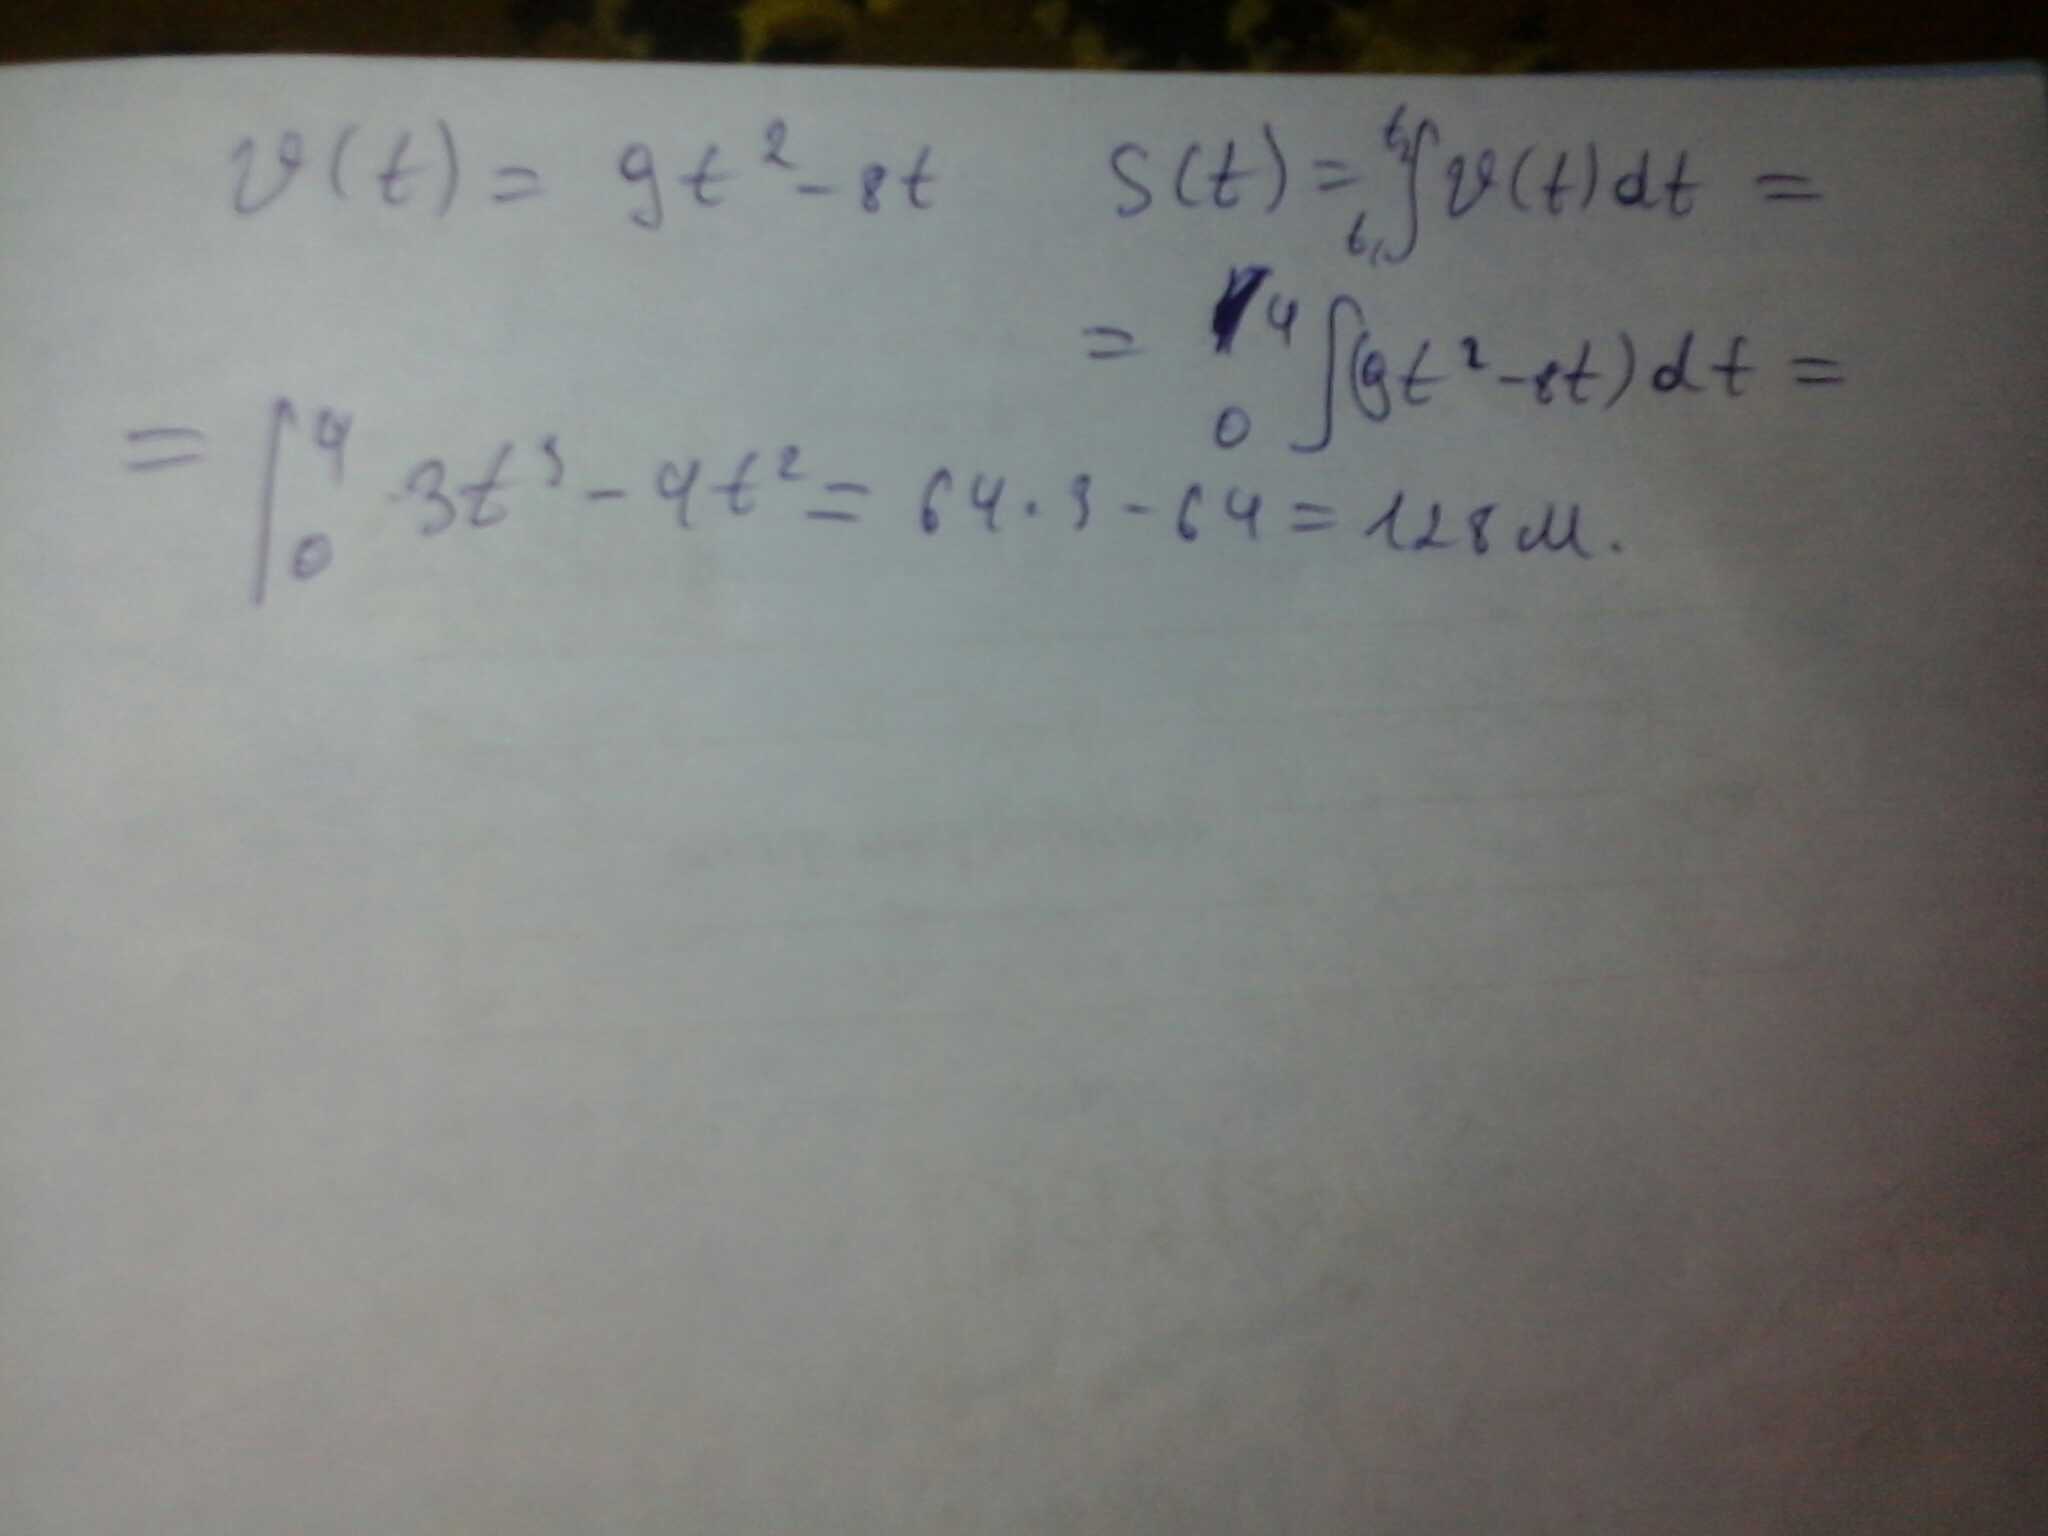 v(t) = 9t² - 8t    S(t) = ∫ₜ₁ᵗ² v(t)dt =
= ₀⁴∫(9t² - 8t)dt =
= |₀⁴ 3t³ - 4t² = 64·3 - 64 = 128 м.